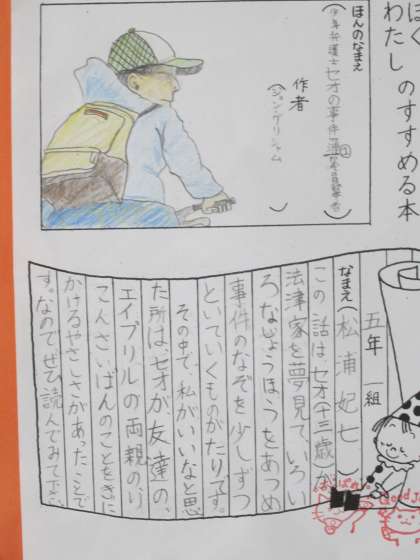 ぼく
わたし のすすめる本
ほんのなまえ
(少年弁護士セオの事件
作者
(ジョングリシャム)
五年 一組
なまえ(松浦妃七)
この話はセオ(十三歳)が、
法津家を夢見ていろい
ろなじょうほうをあつめ
事件のなぞを少しずつ
といていくものがたりです。
その中で、私がいいなと思
た所は、セオが友達の、
エイプリルの両親のり
こんさいばんのことをきに
かけるやさしさがあったことで
す。なのでぜひ読んでみて下さい。
Good J